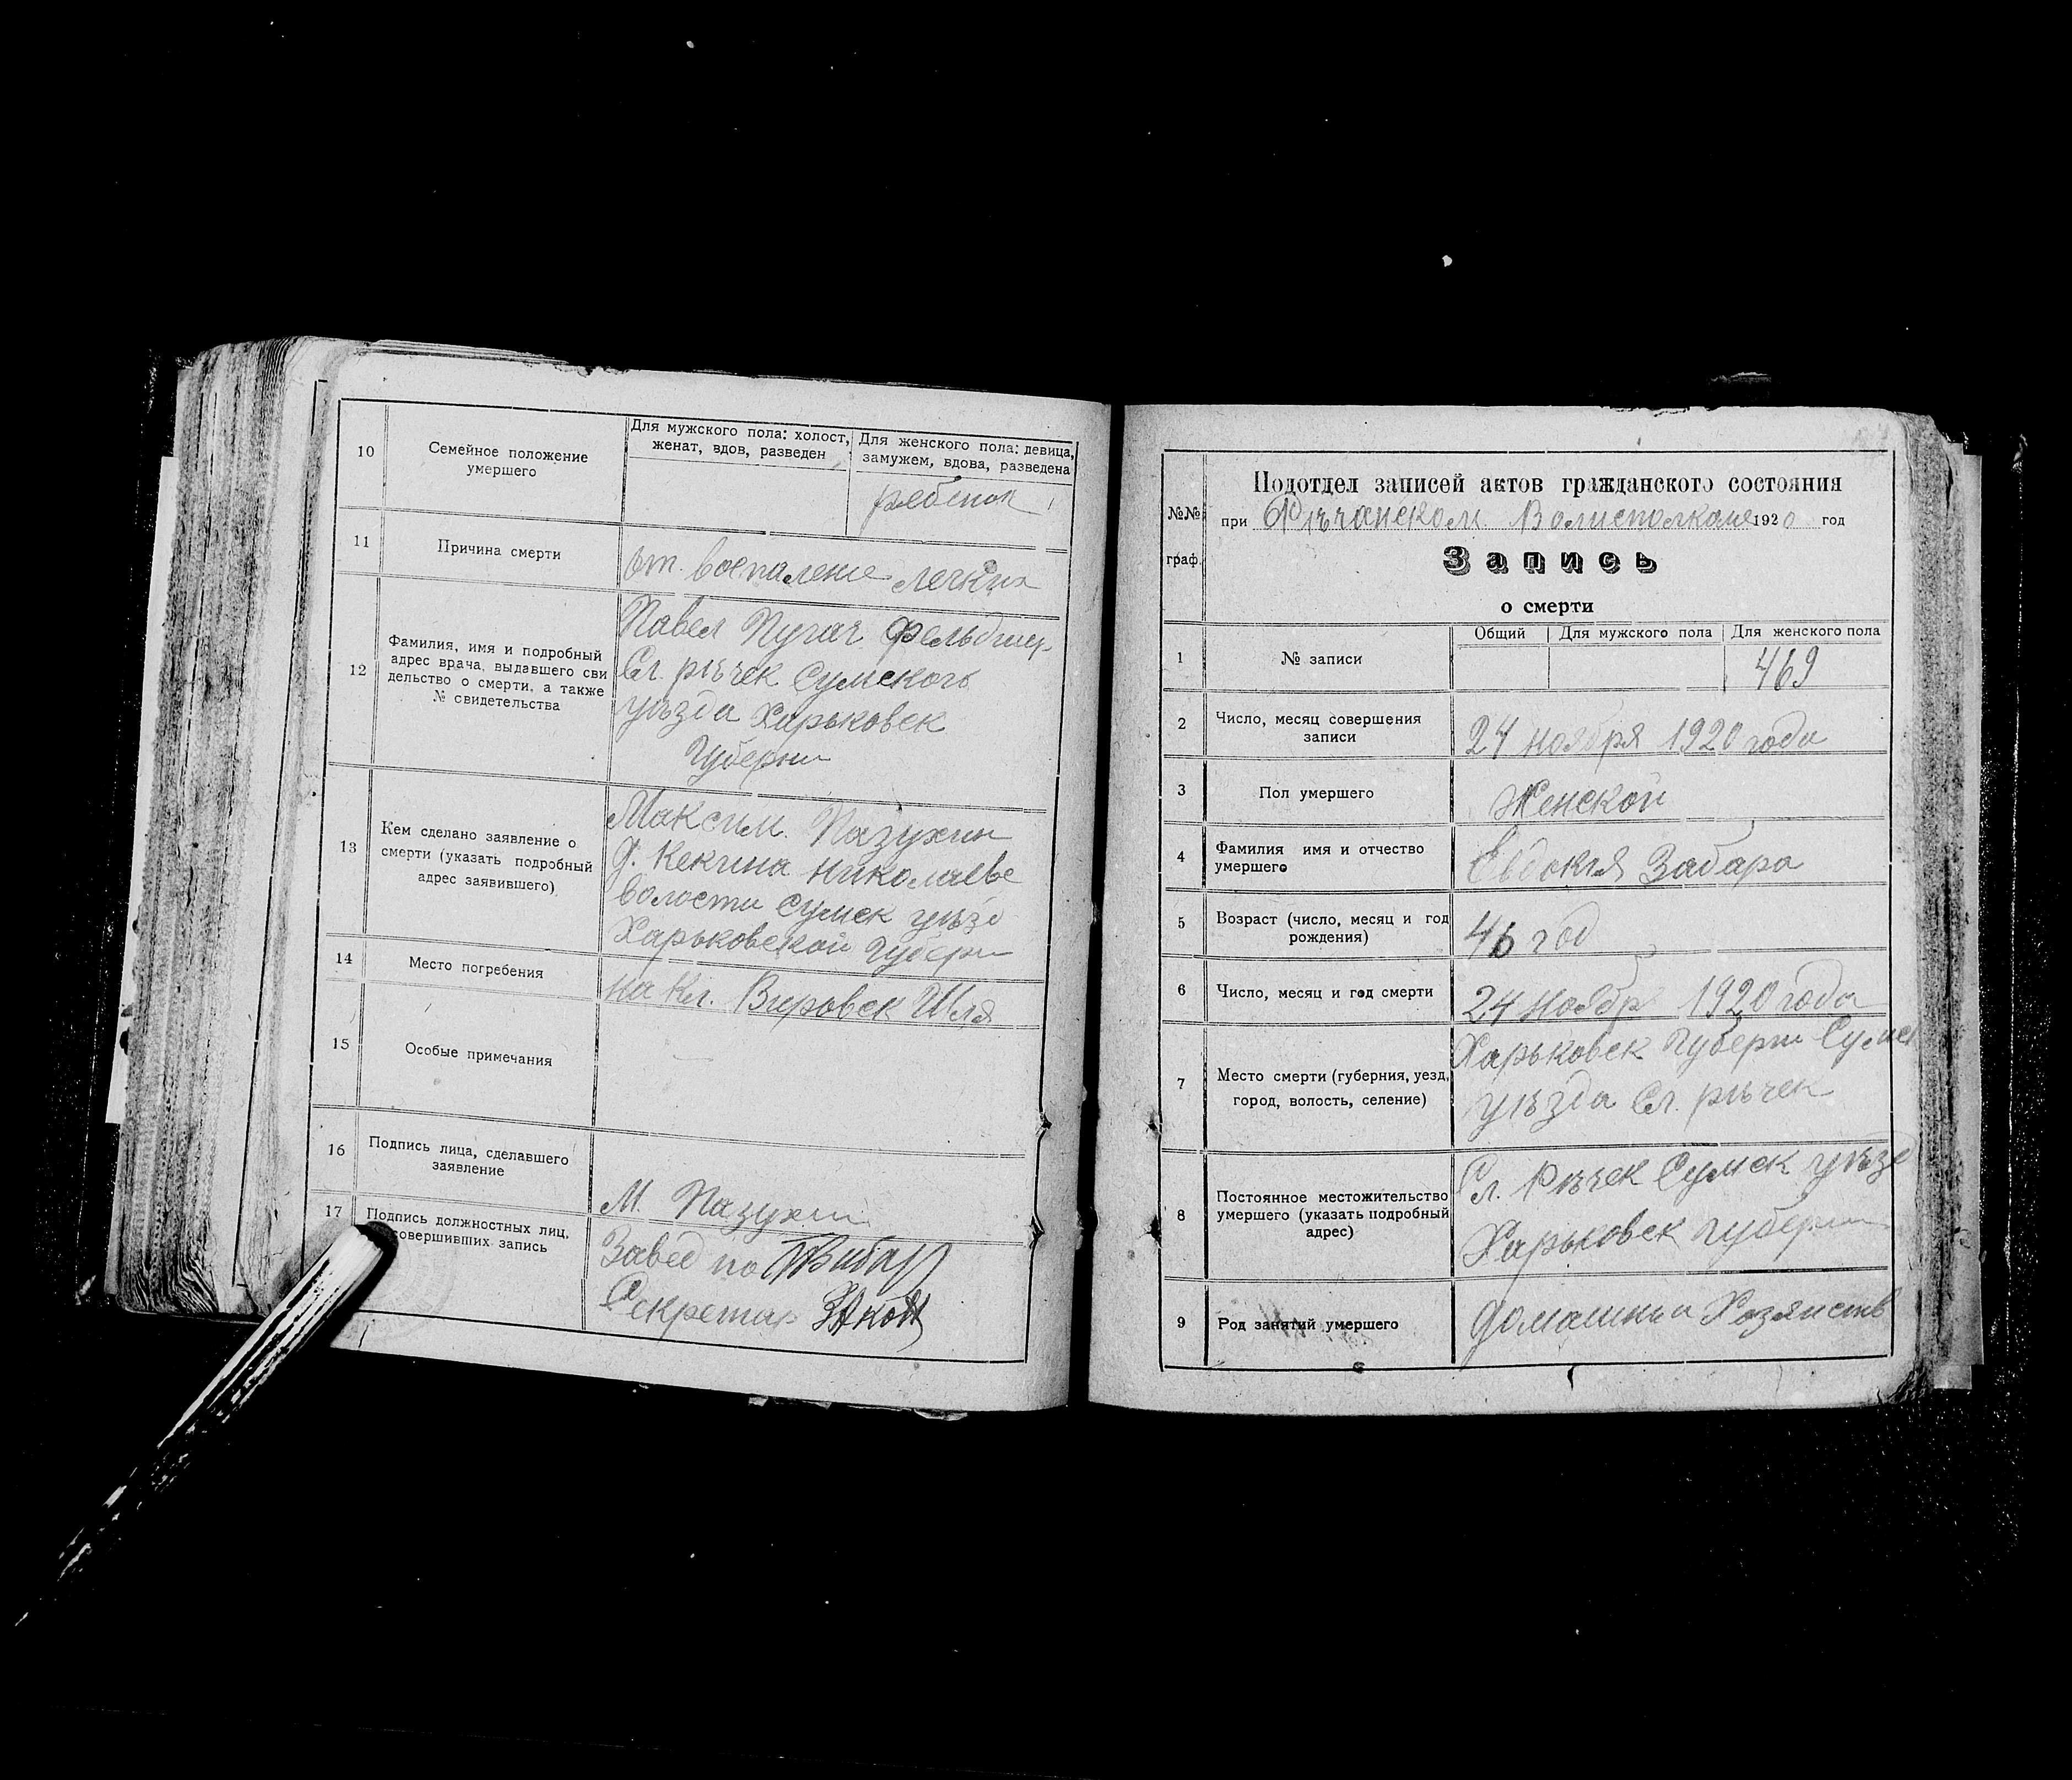 10
Семейное положение
умершего
Для мужского пола: холост,
женат, вдов, разведен
Для женского пола: девица,
замужем, вдова, разведена
рябенок
11
Причина смерти
от. воспаление легких
12
Фамилия, имя и подробный
адрес врача, выдавшего сви
дельство о смерти, а также
№ свидетельства
Павел Пугач Фельдшер
Сл. рѣчек Сумского
уѣзда Харьковск
Губерни
13
Кем сделано заявление о
смерти (указать подробный
адрес заявившего)
Максим. Пазухин
д. Кекина Николаевс
волости Сумск уѣзд
Харьковской Губерн
14
Место погребения
на Кл. Вировск Шля
15
Особые примечания
16
Подпись лица, сделавшего
заявление
М. Пазухин
17
Подпись должностных лиц,
совершивших запись
Завед по
Секретар
№№
граф.
Подотдел записей актов гражданского состояния
при Рѣчанском Волисполкоме 1920 год
Запись
о смерти
1
№ записи
Общий
Для мужского пола
Для женского пола
469
2
Число, месяц совершения
записи
24 ноября 1920 года
3
Пол умершего
Женской
4
Фамилия имя и отчество
умершего
Евдокия Забара
5
Возраст (число, месяц и год
рождения)
46 год
6
Число, месяц и год смерти
24 Ноябр 1920 года
7
Место смерти (губерния, уезд,
город, волость, селение)
Харьковск Губерни Сумск
уѣзда Сл. рѣчек
8
Постоянное местожительство
умершего (указать подробный
адрес)
Сл. Рѣчек Сумск уѣзд
Харьковск Губерни
9
Род занятий умершего
домашньа Хозяиств